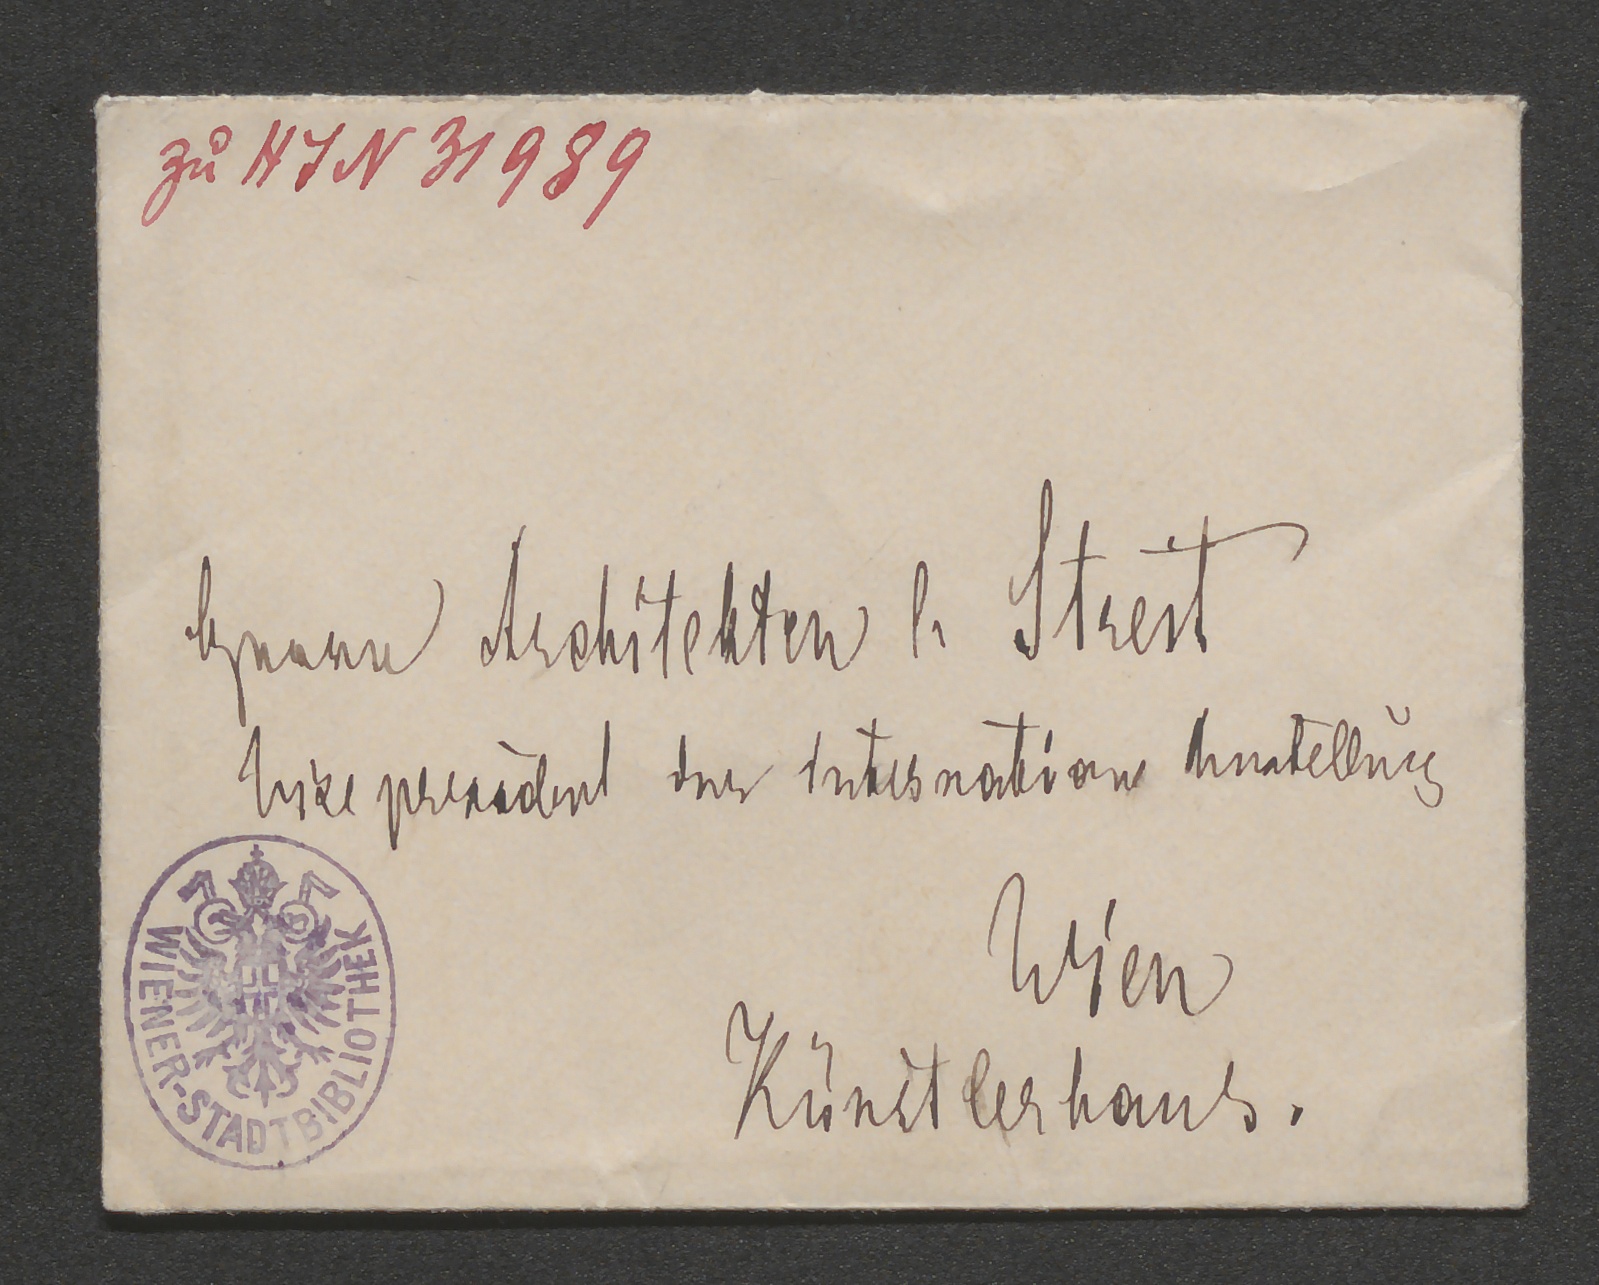 zu HIN 31989
Herrn Architekten A. Streit
Vizepräsident der Internation Ausstellung
Wien
Künstlerhaus.
WIENER-STADTBIBLIOTHEK